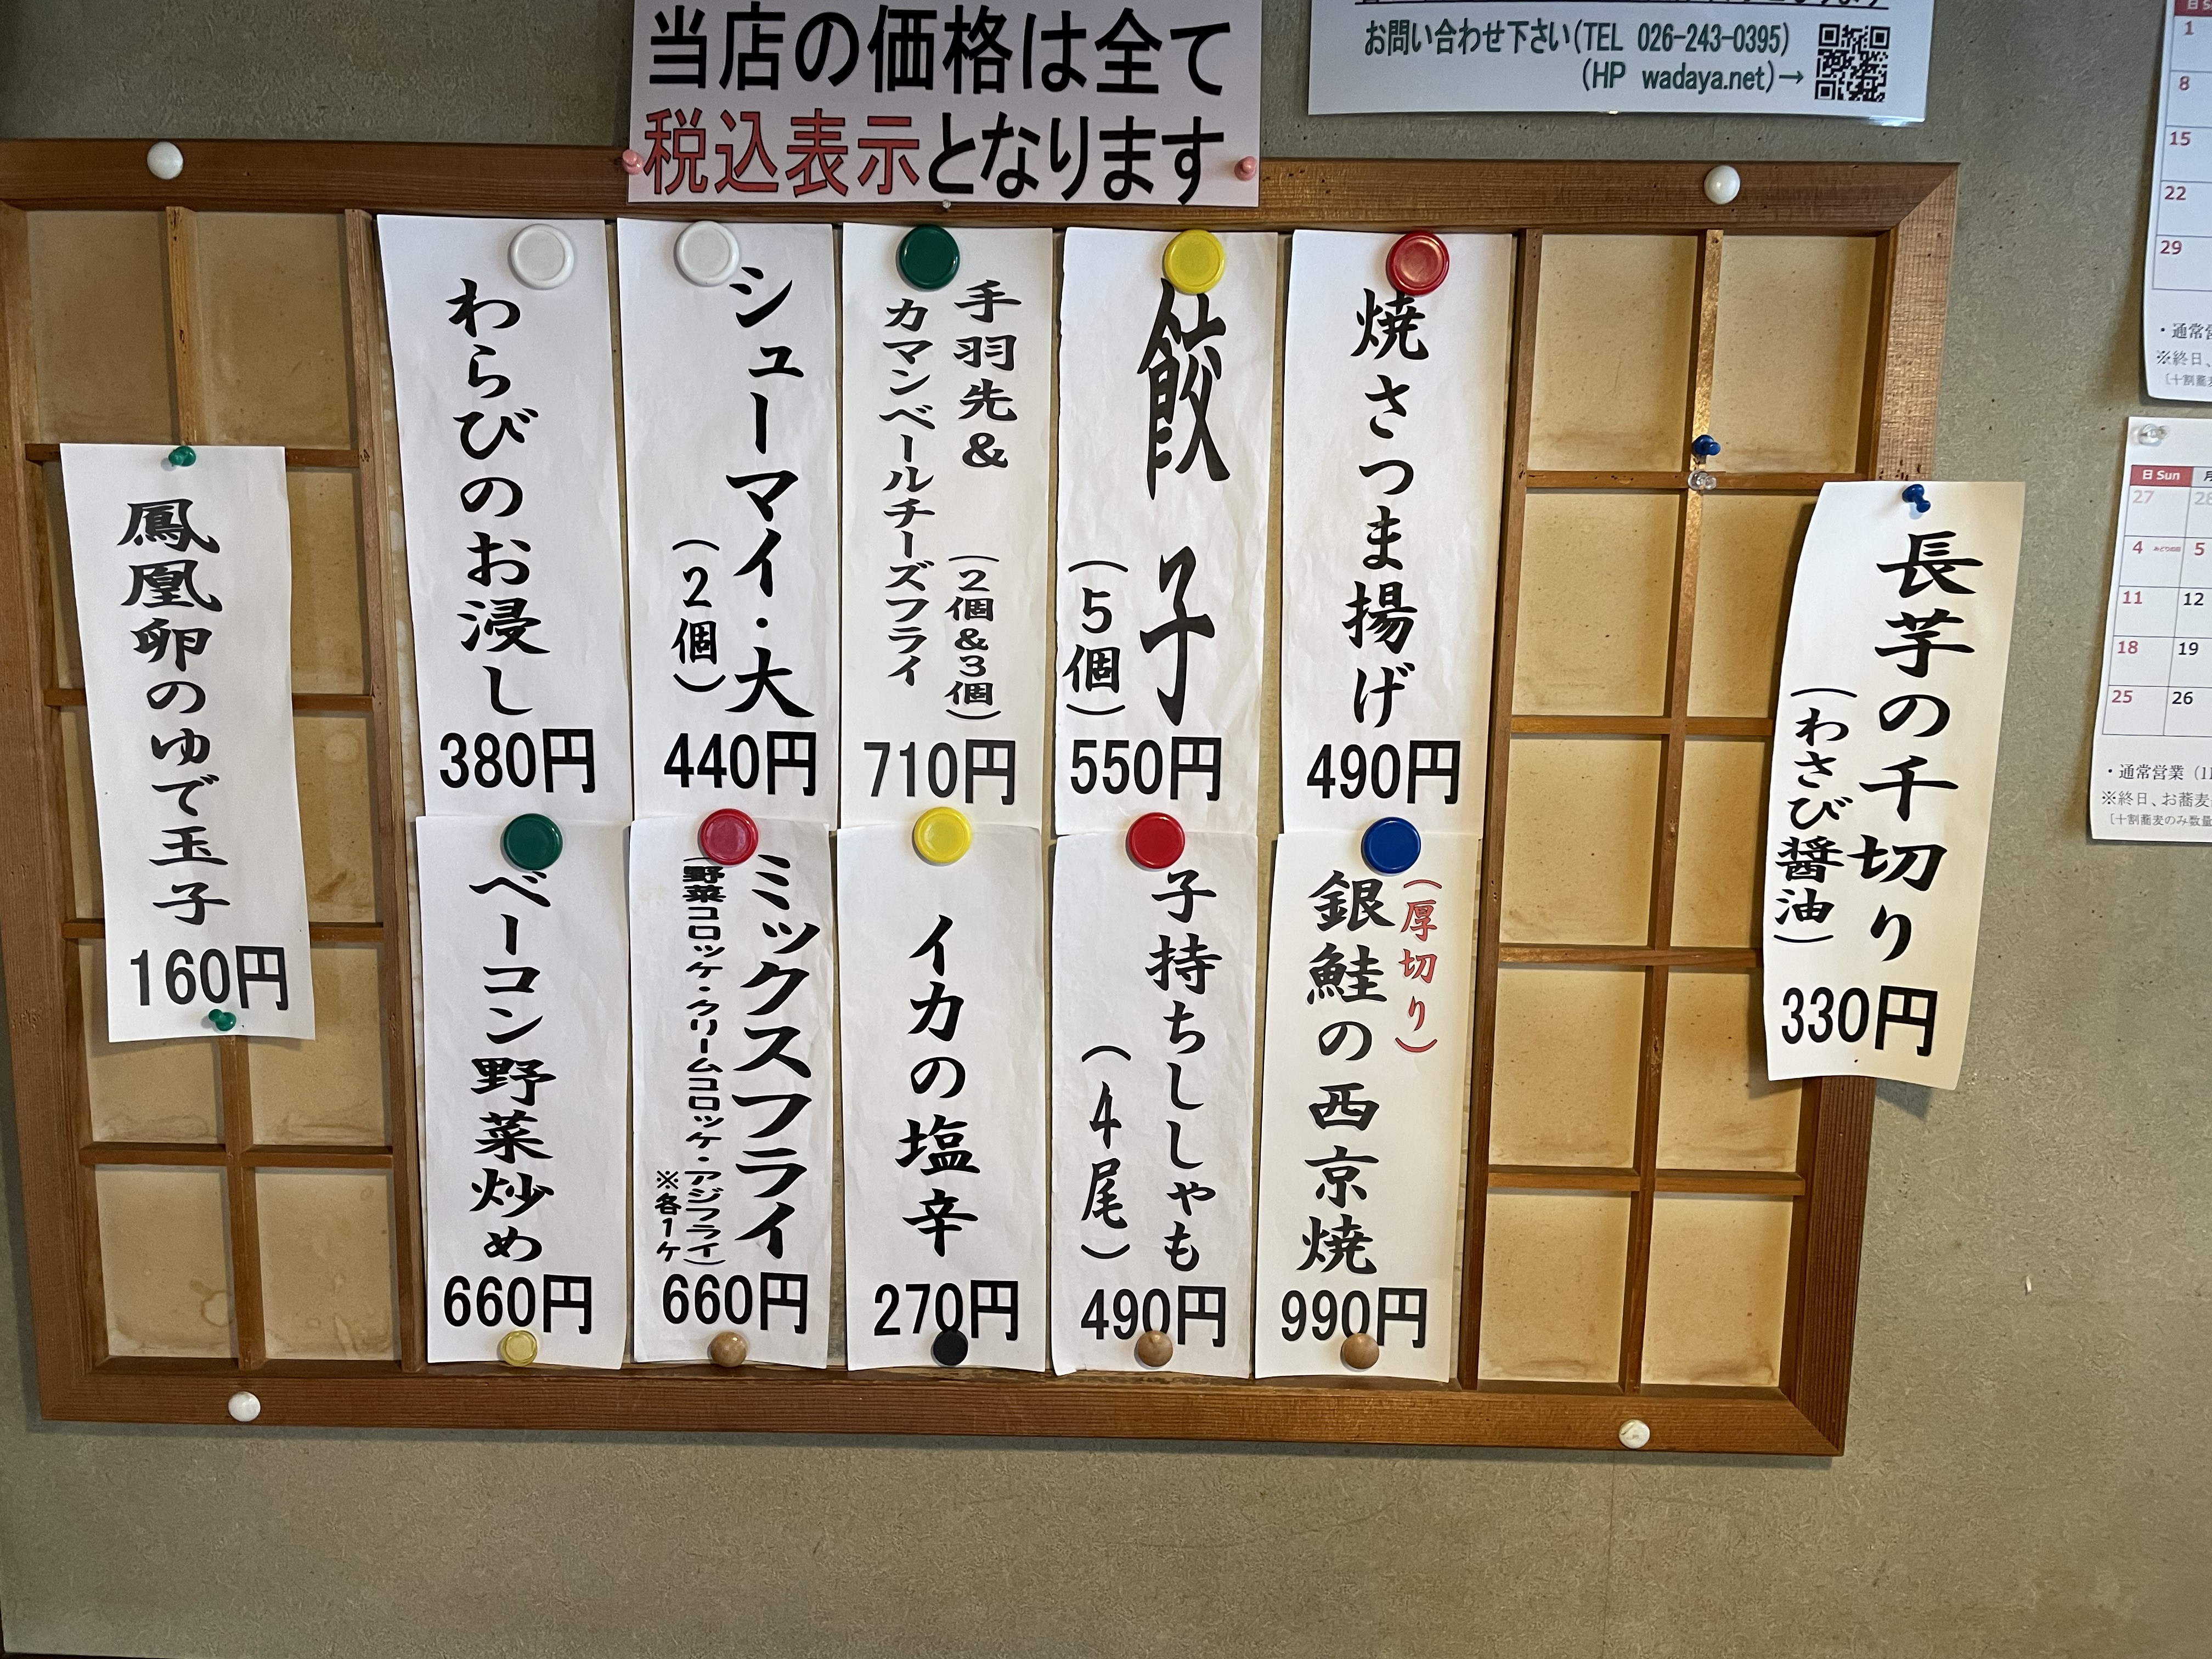 当店の価格は全て
税込表示となります
お問い合わせ下さい(TEL 026-243-0395)
(HP wadaya.net)→
長芋の千切り
(わさび醤油)
330円
焼さつま揚げ
490円
餃子
(5個)
550円
手羽先&
(2個&3個)
カマンベールチーズフライ
710円
シューマイ・大
(2個)
440円
わらびのお浸し
380円
(厚切り)
銀鮭の西京焼
990円
子持ちししゃも
(4尾)
490円
イカの塩辛
270円
ミックスフライ
(野菜コロッケ・クリームコロッケ・アジフライ)
※各1ケ
660円
ベーコン野菜炒め
660円
鳳凰卵のゆで玉子
160円
1
8
15
22
29
・通常
※終日、
日 Sun 月
27 28
4 みどりの日 5
11 12
18 19
25 26
・通常営業 (11
※終日、お蕎麦
[十割蕎麦のみ数量